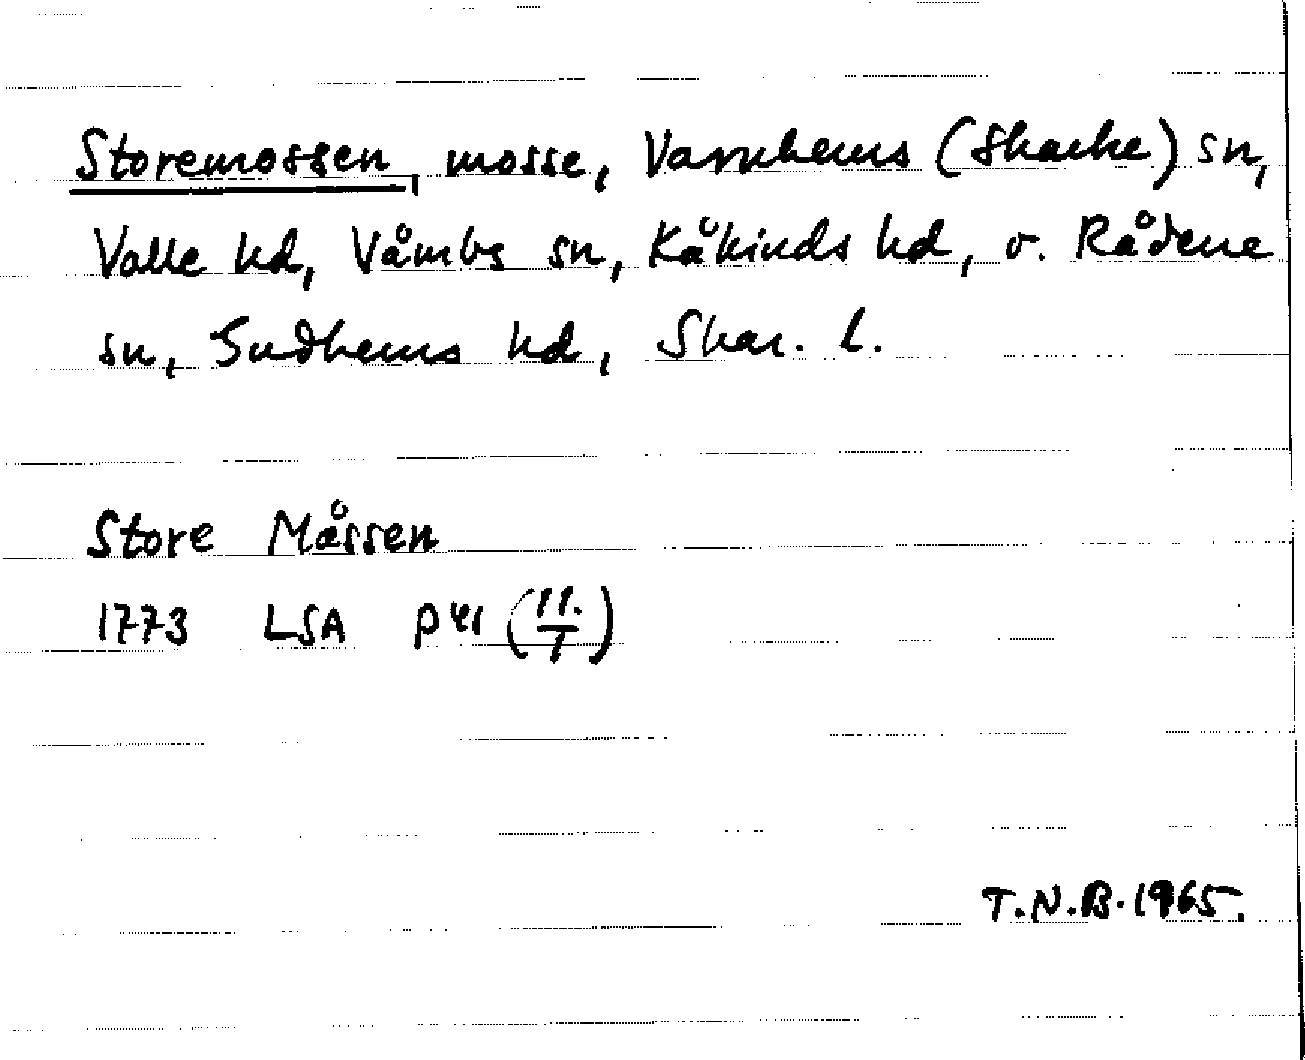 Storemossen, mosse, Varnhems (Skarke) sn,
Valle hd, Våmbs sn, Kåkinds hd, o. Rådene
sn, Gudhems hd, Skar. l.
Store Måssen
1773 LSA P41 (11./1)
T.N.B. 1965.